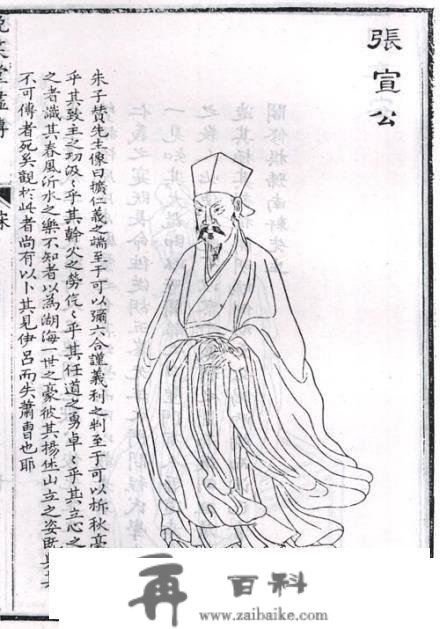 張宣公
朱子贊先生像曰擴仁義之端至于可以彌六合謹義利之判至于可以析秋毫
乎其致主之切汲〻乎其幹父之勞仡〻乎其任道之勇卓〻乎其立心之
之者識其春風沂水之樂不知者以為湖海一世之豪彼其揚休山立之姿既與其
不可傳者死矣觀於此者尚有以卜其見伊呂而失蕭曹也耶
晚笑堂畫傳
再百科
www.zaibaike.com